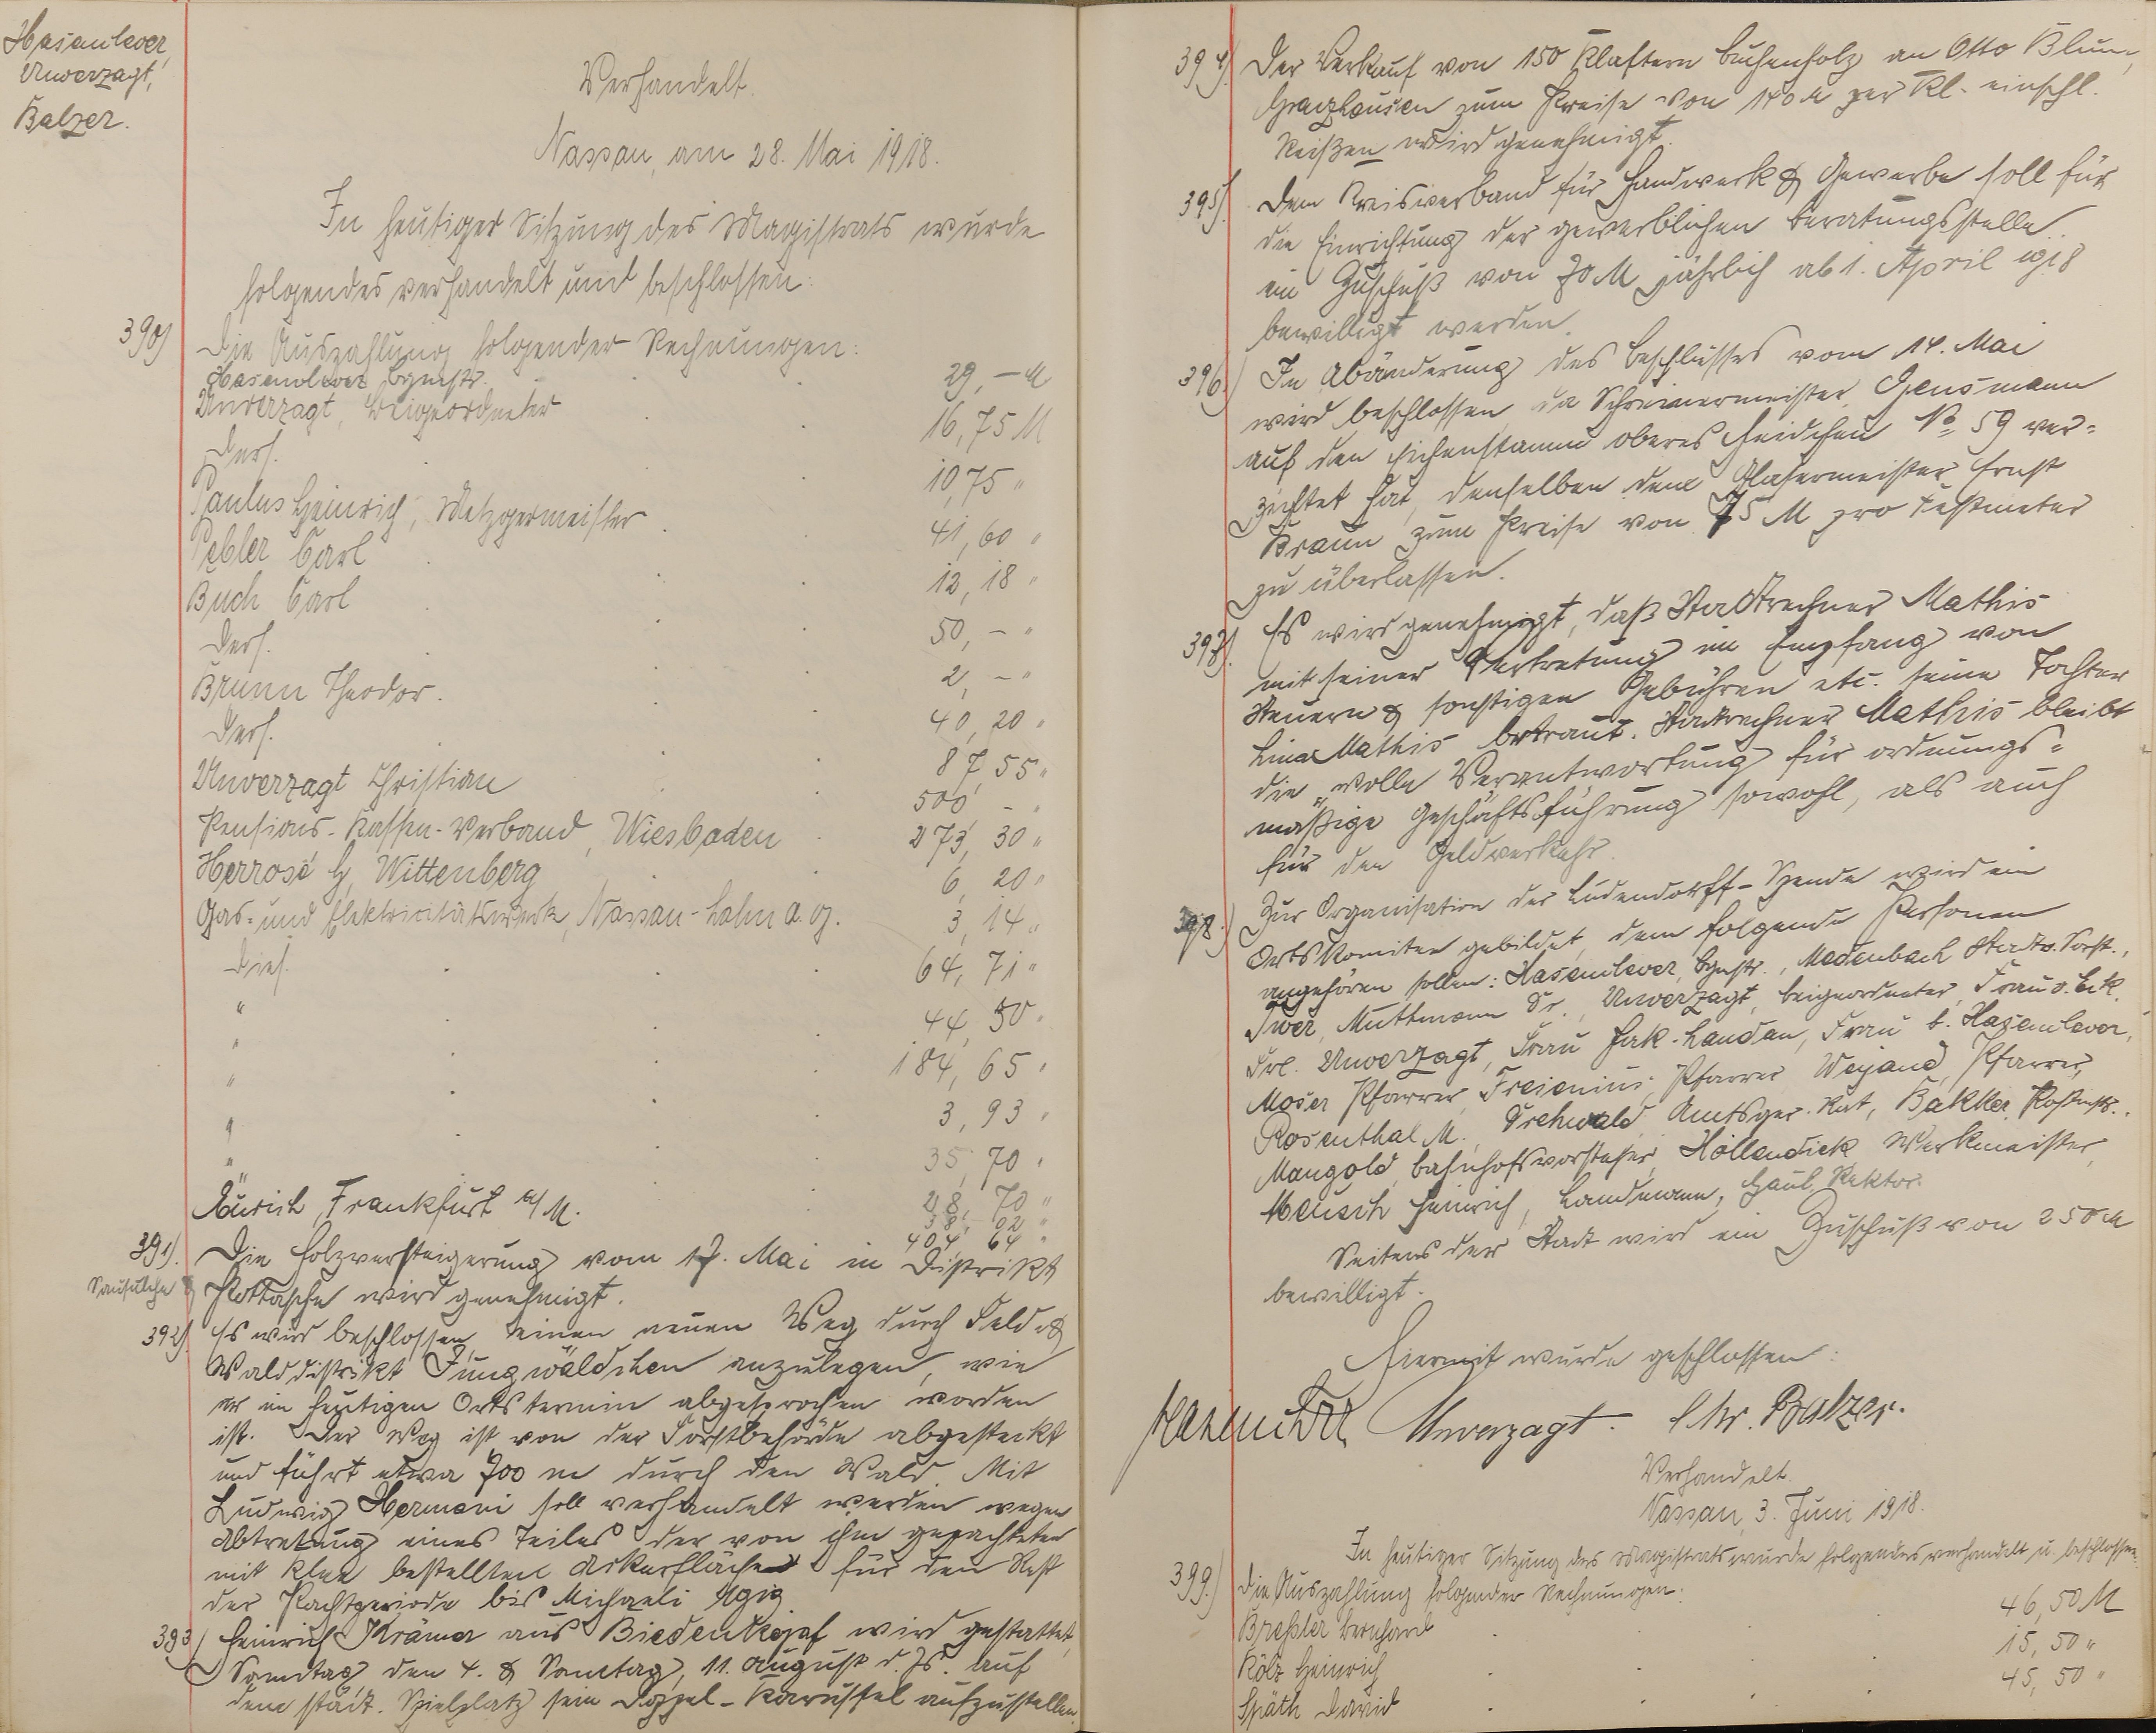 Hasenclever,
Unverzagt,
Balzer.
Verhandelt.
Nassau, am 28. Mai 1918.
In heutiger Sitzung des Magistrats wurde
folgendes verhandelt und beschlossen:
390) Die Auszahlung folgender Rechnungen:
Hasenclever, Bgmstr. 29,— M
Unverzagt, Beigeordneter 16,75 M
Ders. 10,75 "
Paulus Heinrich, Metzgermeister 41,60 "
Pebler Carl 12,18 "
Buch Carl 50,— "
Ders. 2,— "
Brunn Theodor. 40,20 "
Ders. 87,55 "
Unverzagt Christian 500 — "
Pensions-Kassen-Verband, Wiesbaden 273,30 "
Herrosé H, Wittenberg 6,20 "
Gas- und Elektricitätswerk, Nassau-Lahn A. G. 3,14 "
Dies. 64,71 "
" 44,50 "
" 184,65 "
" 3,93 "
" 35,70 "
" 28,70 "
38,02 "
Frankfurt a/M. 404,64 "
391). Die Holzversteigerung vom 17. Mai in Distrikt
Pottasche wird genehmigt.
392). Es wird beschlossen, einen neuen Weg durch Feld &
Walddistrikt Jungwäldchen anzulegen, wie
er im heutigen Ortstermin abgesprochen worden
ist. Der Weg ist von der Forstbehörde abgesteckt
und führt etwa 700 m durch den Wald. Mit
Ludwig Hermani soll verhandelt werden wegen
Abtretung eines Teiles der von ihm gepachteten
mit Klee bestellten Ackerfläche für den Rest
der Pachtperiode bis Michaeli 1919
393) Heinrich Krämer aus Biedenkopf wird gestattet,
Sonntag, den 4. & Sonntag, 11. August d. Js. auf
dem städt. Spielplatz sein Doppel-Karussel aufzustellen.
394). Der Verkauf von 150 Klaftern Buchenholz an Otto Blum,
zum Preise von 140 M per Kl. einschl.
Reißen wird genehmigt.
395). Dem Kreisverband für Handwerk & Gewerbe soll für
die Einrichtung der gewerblichen Beratungsstelle
ein Zuschuß von 70 M jährlich ab 1. April 1918
bewilligt werden.
396.) In Abänderung des Beschlusses vom 14. Mai
wird beschlossen, da Schreinermeister Gensmann
auf den Eichenstamm oberes Heidchen No 59 ver-
zichtet hat, denselben dem Glasermeister Ernst
Braun zum Preise von 75 M pro Festmeter
zu überlassen.
397). Es wird genehmigt, daß Stadtrechner Mathis
mit seiner Vertretung im Empfang von
Steuern & sonstigen Gebühren etc. seine Tochter
Lina Mathis betraut. Stadtrechner Mathis bleibt
die volle Verantwortung für ordnungs-
mäßige Geschäftsführung sowohl, als auch
für den Geldverkehr.
398.) Zur Organisation der Ludendorff-Spende wird ein
Ortskomitee gebildet, dem folgende Personen
angehören sollen: Hasenclever, Bgmstr., Medenbach Stadtv. Vorst.,
Iwer, Muthmann Dr., Unverzagt, Beigeordneter, Frau v. Eck,
Frl. Unverzagt, Frau Landau, Frau E. Hasenclever,
Moser Pfarrer, Fresenius, Pfarrer, Weyand, Pfarrer,
Rosenthal M., Amtsger. Rat, Bakker, Postmstr.,
Mangold, Bahnhofsvorsteher, Höllendick Werkmeister,
Meusch Heinrich, Landmann, Gaul, Rektor.
Seitens der Stadt wird ein Zuschuß von 250 M
bewilligt.
Hiermit wurde geschlossen:
Hasenclever Unverzagt. Chr. Balzer.
Verhandelt.
Nassau, 3. Juni 1918.
In heutiger Sitzung des Magistrats wurde folgendes verhandelt u. beschlossen:
399.) Die Auszahlung folgender Rechnungen:
Bernhard 46,50 M
Kölz Heinrich 15,50 "
Späth David 45,50 "